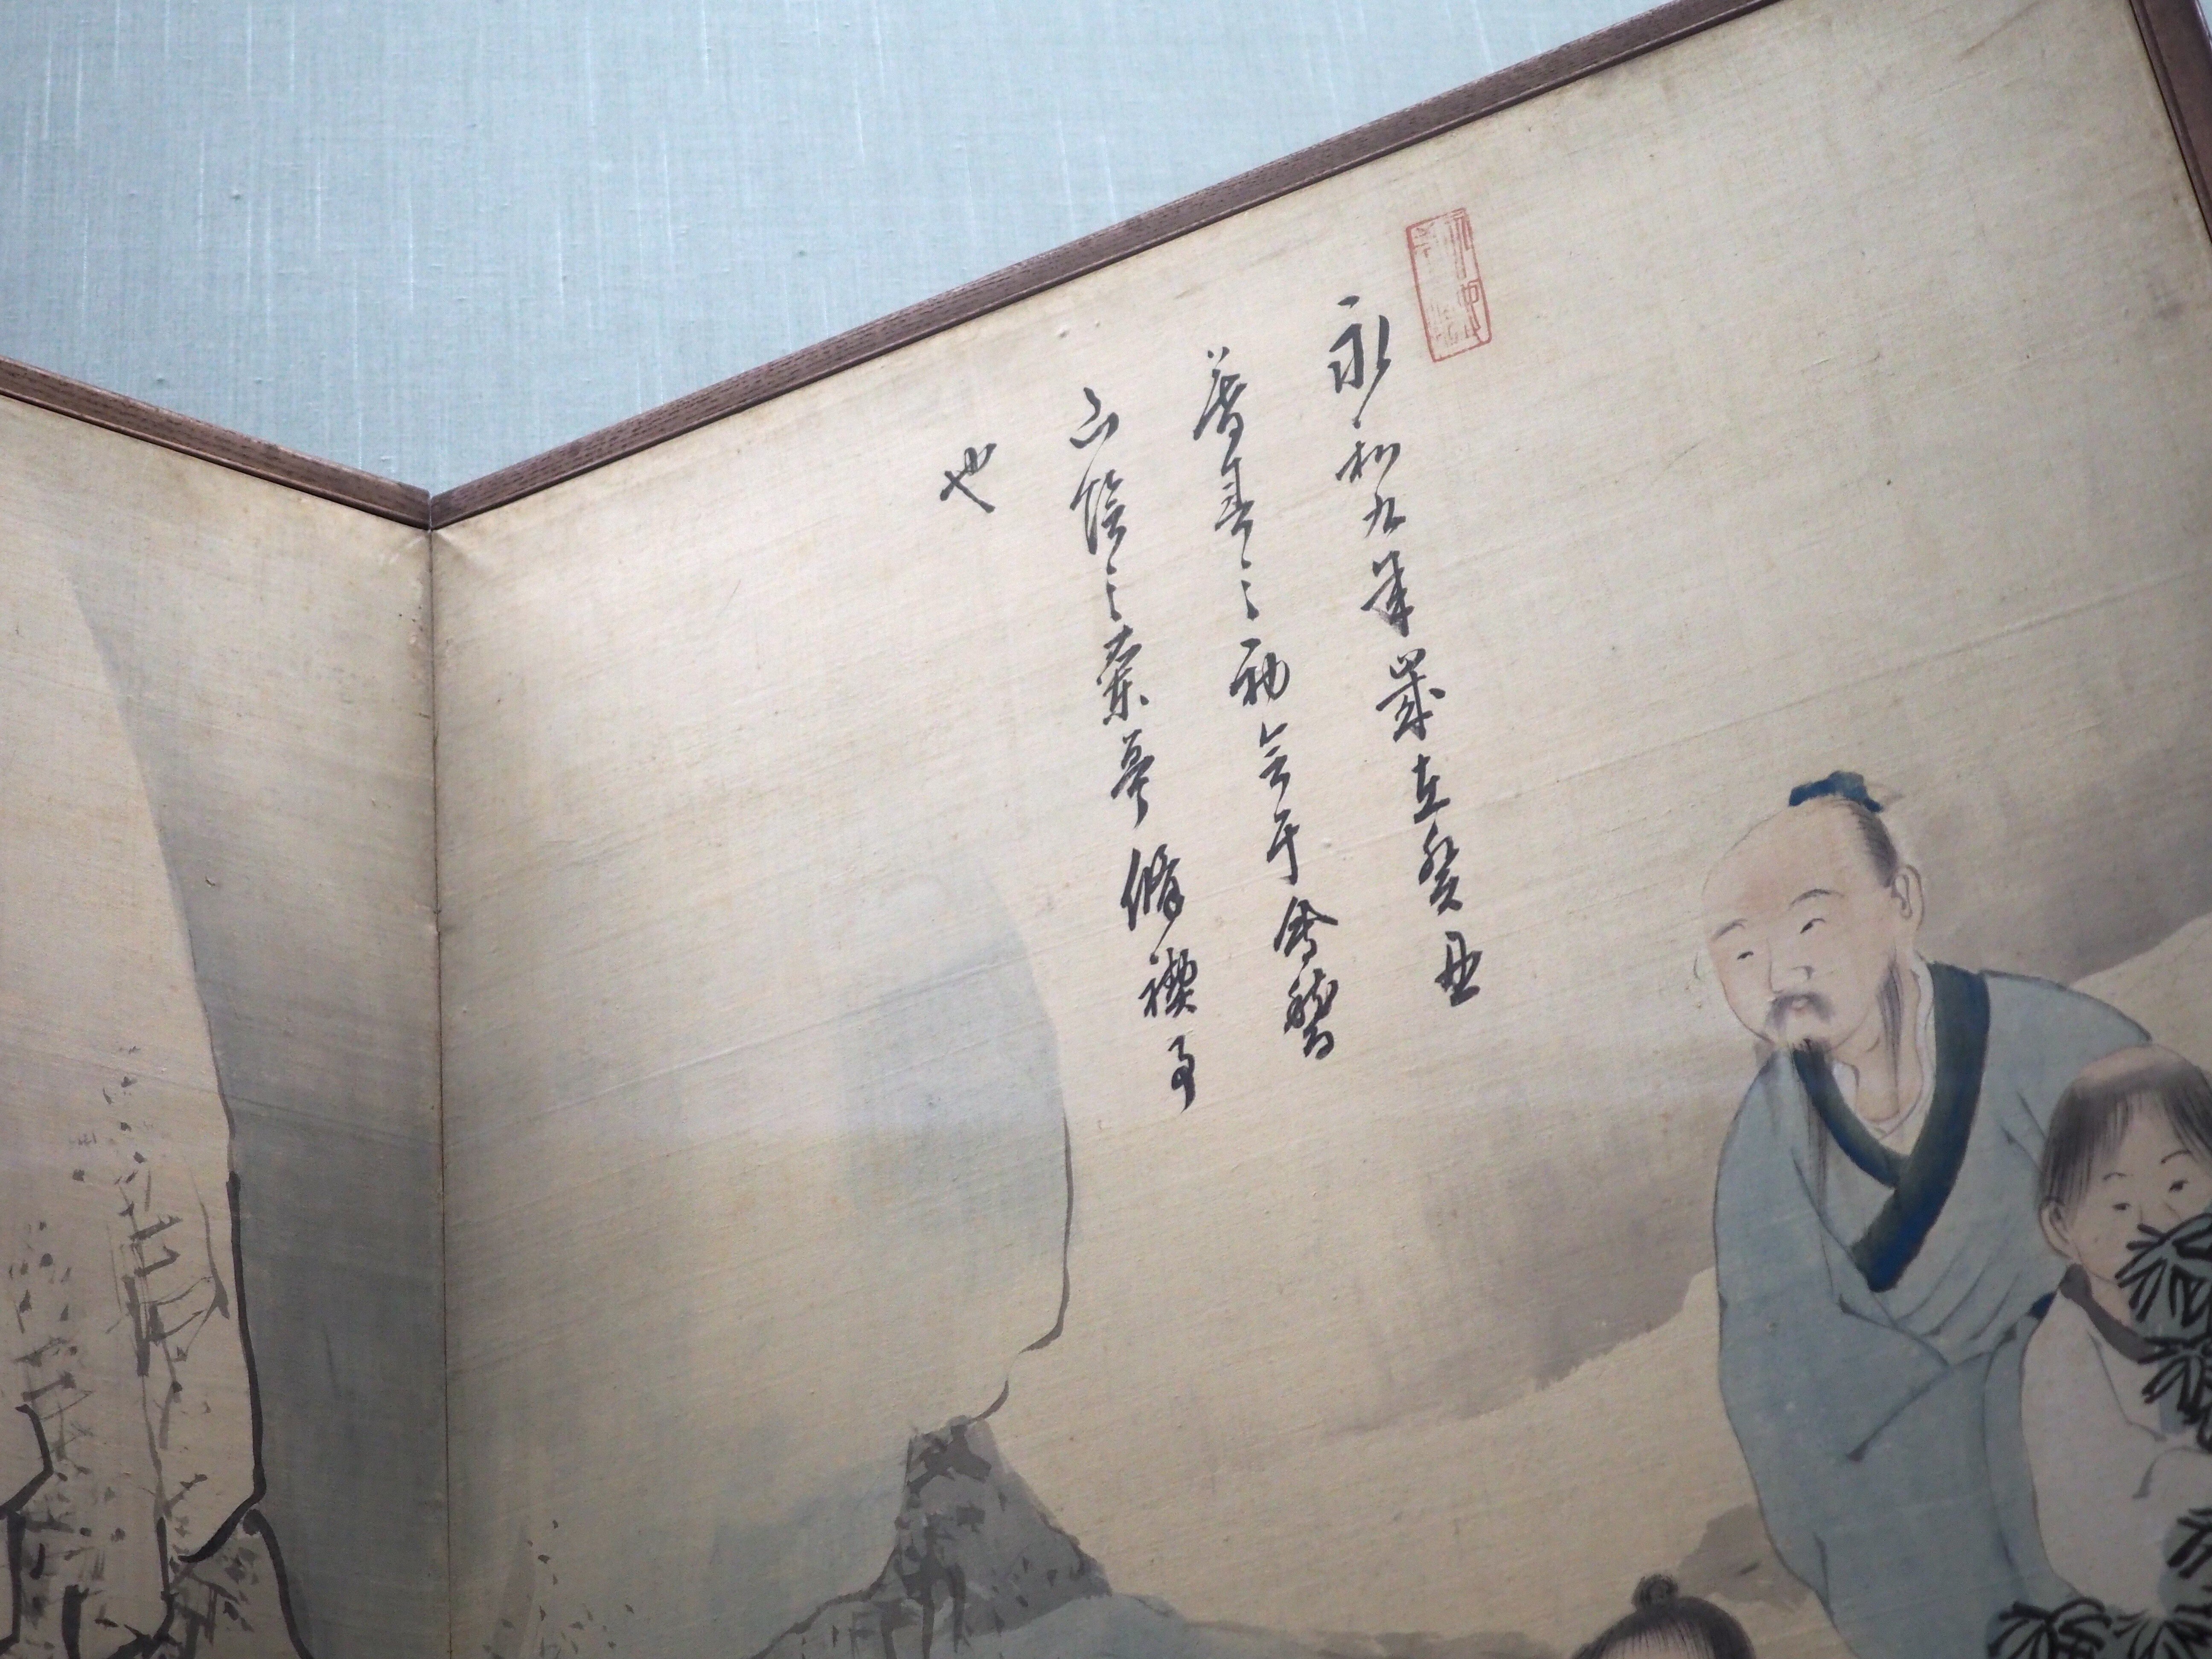 永和九年歲在癸丑
暮春之初會于會稽
山陰之蘭亭脩禊事
也